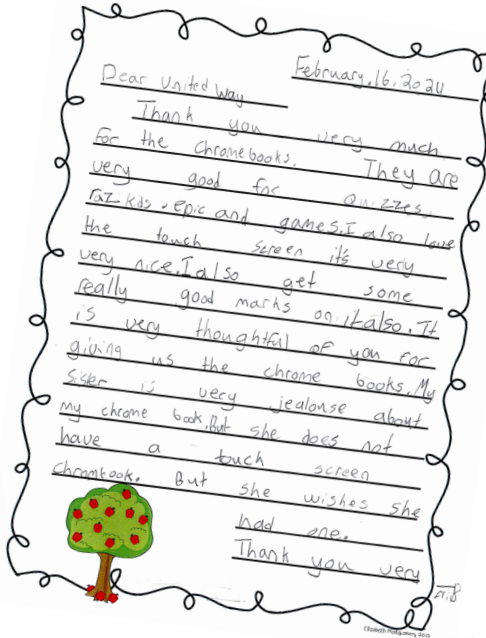 February.16.2024
Dear United Way
Thank you very much
For the Chromebooks. They are
very good for Quizzes.
raz kids, epic and games. I also love
the touch screen it's very
very nice. I also get some
really good marks on it also. It
is very thoughtful of you for
giving us the chrome books. My
Sister is very jealouse about
my chrome book. But she does not
have a touch screen
chromtbook. But she wishes she
had one.
Thank you very
Elizabeth Montgomery 2013